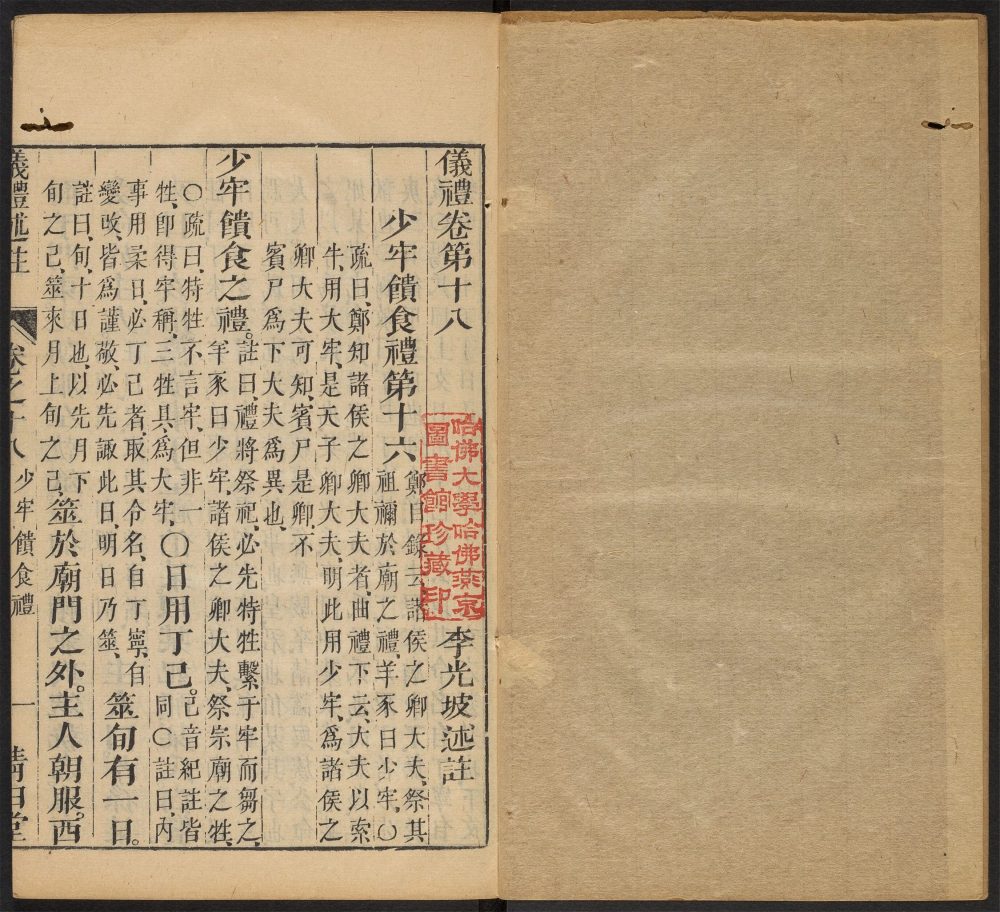 儀禮卷第十八
李光坡述註
少牢饋食禮第十六
鄭目錄云諸侯之卿大夫祭其
祖禰於廟之禮羊豕曰少牢〇
疏曰鄭知諸侯之卿大夫者曲禮下云大夫以索
牛用大牢是天子卿大夫明此用少牢為諸侯之
卿大夫可知賓尸是卿不
賓尸為下大夫為異也
少牢饋食之禮。註曰禮將祭祀必先特牲繫于牢而芻之
羊豕曰少牢諸侯之卿大夫祭宗廟之牲
〇疏曰特牲不言牢但非一
牲卽得牢稱三牲具為大牢〇日用丁己。己音紀註皆
同〇註曰內
事用柔日必丁己者取其令名自丁寧自
變改皆為謹敬必先諏此日明日乃筮
筮旬有一日。
註曰旬十日也以先月下
旬之己筮來月上旬之己
筮於廟門之外。主人朝服。西
儀禮述註
卷之十八
少牢饋食禮
一
清白堂
哈佛大學哈佛燕京
圖書館珍藏印